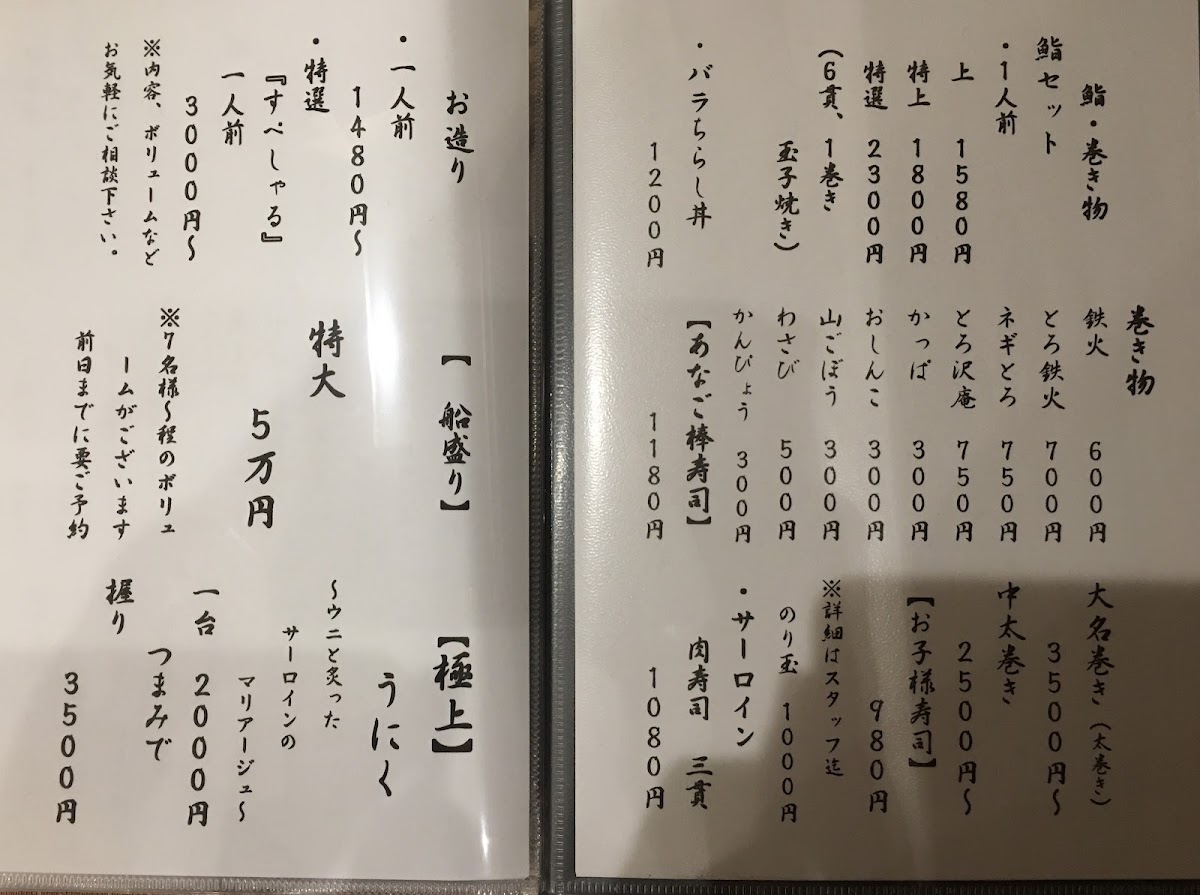 鮨・巻き物
鮨セット
・1人前
上 1580円
特上 1800円
特選 2300円
(6貫、1巻き
玉子焼き)
・バラちらし丼
1200円
巻き物
鉄火 600円
とろ鉄火 700円
ネギとろ 750円
とろ沢庵 750円
かっぱ 300円
おしんこ 300円
山ごぼう 300円
わさび 500円
かんぴょう 300円
【あなご棒寿司】
1180円
大名巻き(太巻き)
3500円～
中太巻き
2500円～
【お子様寿司】
980円
※詳細はスタッフ迄
のり玉 1000円
・サーロイン
肉寿司 三貫
1080円
お造り
・一人前
1480円～
・特選
『すぺしゃる』
一人前
3000円～
※内容、ボリュームなど
お気軽にご相談下さい。
【 船盛り】
特大
5万円
※7名様～程のボリュ
ームがございます
前日までに要ご予約
【極上】
うにく
～ウニと炙った
サーロインの
マリアージュ～
一台 2000円
つまみで
握り
3500円